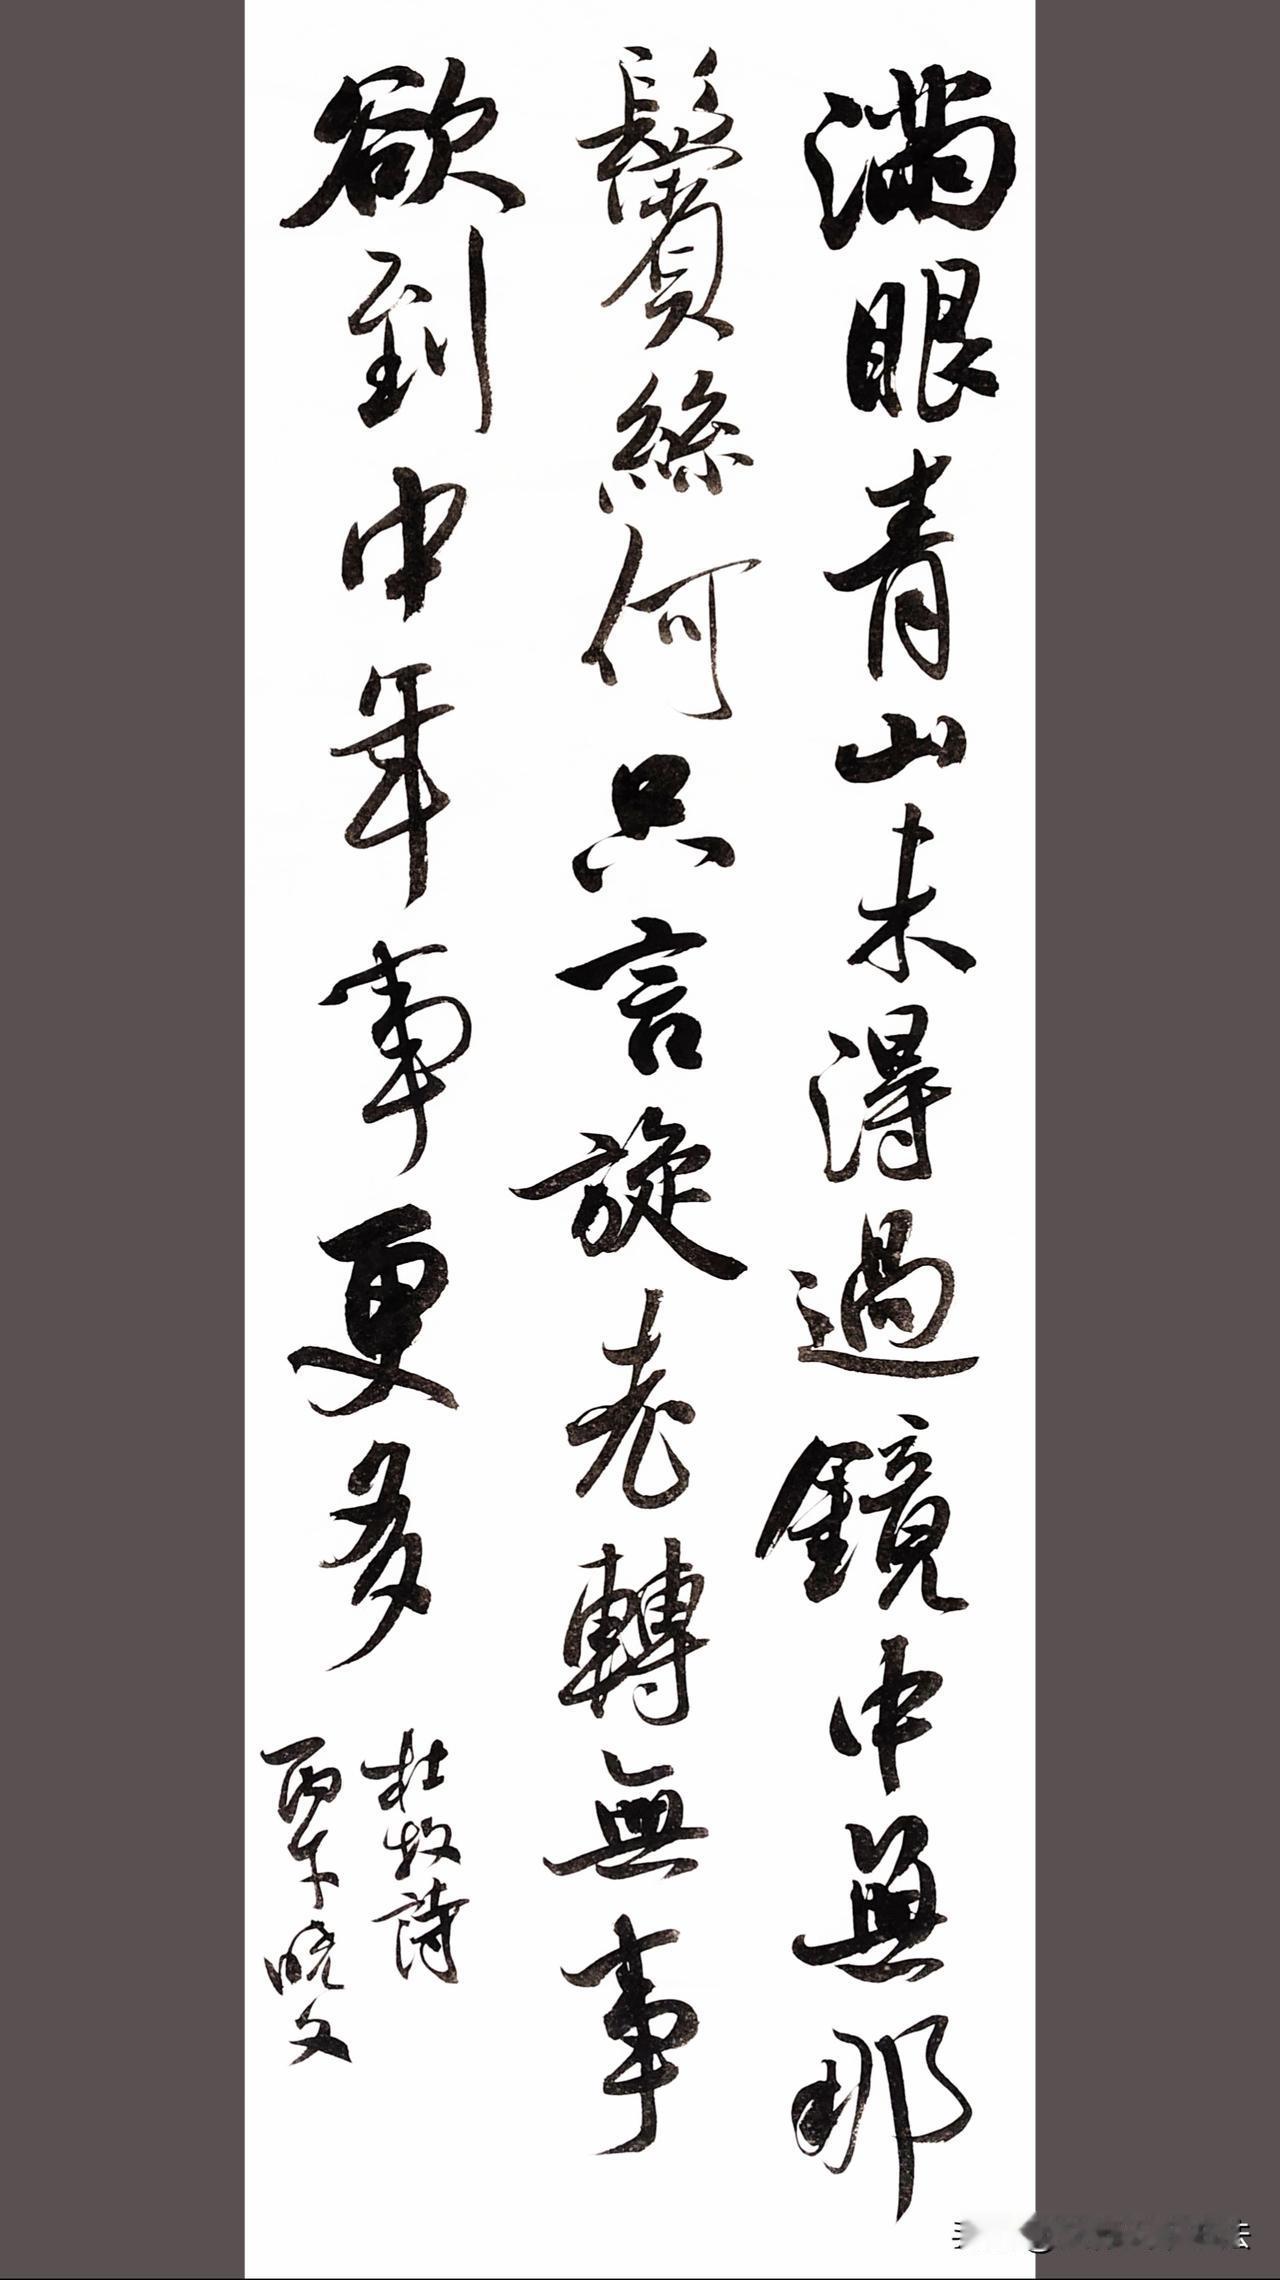 滿眼青山未得過鏡中無那
鬢絲何只言旋老轉無事
欲到中年事更多
杜牧詩
丙午曉文